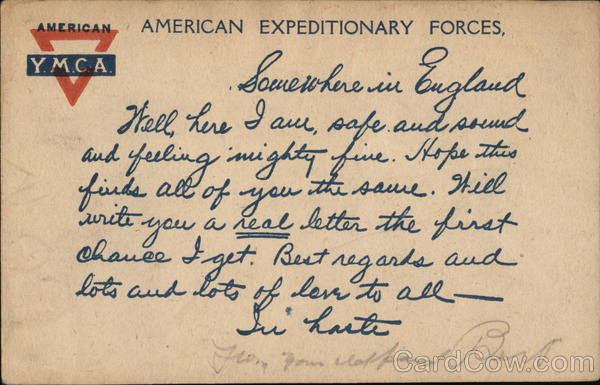 AMERICAN
Y.M.C.A.
AMERICAN EXPEDITIONARY FORCES,
Somewhere in England
Well, here I am, safe and sound
and feeling mighty fine. Hope this
finds all of you the same. Will
write you a real letter the first
chance I get. Best regards and
lots and lots of love to all —
In haste
From your old
CardCow.com